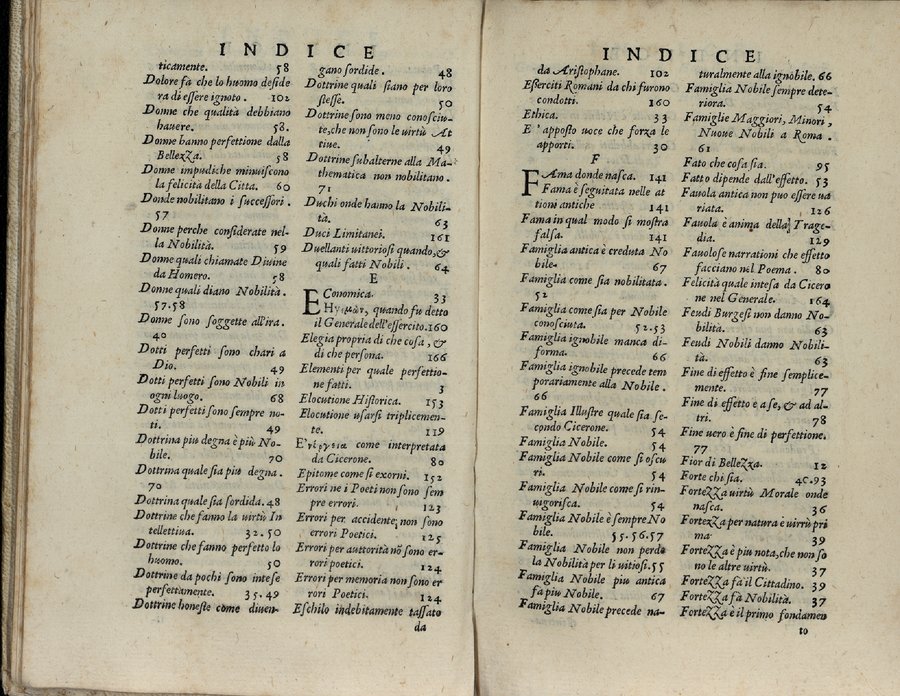 INDICE
ticamente. 58
Dolore fà che lo huomo deside
ra di essere ignoto. 102
Donne che qualità debbiano
hauere. 58.
Donne hanno perfettione dalla
Bellezza. 58
Donne impudiche minuiscono
la felicità della Citta. 60
Donde nobilitano i successori.
57
Donne perche considerate nel-
la Nobilità. 59
Donne quali chiamate Diuine
da Homero. 58
Donne quali diano Nobilità.
57.58
Donne sono soggette all'ira.
40
Dotti perfetti sono chari a
Dio. 49
Dotti perfetti sono Nobili in
ogni luogo. 68
Dotti perfetti sono sempre no-
ti. 49
Dottrina piu degna è più No-
bile. 70
Dottrina quale sia piu degna.
70
Dottrina quale sia sordida. 48
Dottrine che fanno la uirtù In
tellettiua. 32.50
Dottrine che fanno perfetto lo
huomo. 50
Dottrine da pochi sono intese
perfettamente. 35.49
Dottrine honeste come diuen-
gano sordide. 48
Dottrine quali siano per loro
stesse. 50
Dottrine sono meno conosciu-
te, che non sono le uirtù At
tiue. 49
Dottrine subalterne alla Ma-
thematica non nobilitano.
71
Duchi onde hanno la Nobili-
tà. 63
Duci Limitanei. 161
Duellanti uittoriosi quando, &
quali fatti Nobili. 64
E
EConomica. 33
Ηγεμὼν, quando fu detto
il Generale dell'essercito. 160
Elegia propria di che cosa, &
di che persona. 166
Elementi per quale perfettio-
ne fatti. 3
Elocutione Historica. 153
Elocutione usarsi triplicemen-
te. 119
Ε'νέργεια come interpretata
da Cicerone. 80
Epitome come si exorni. 152
Errori ne i Poeti non sono sem
pre errori. 123
Errori per accidente, non sono
errori Poetici. 125
Errori per auttorità nõ sono er-
rori poetici. 124
Errori per memoria non sono er
rori Poetici. 124
Eschilo indebitamente tassato
da
INDICE
da Aristophane. 102
Eserciti Romani da chi furono
condotti. 160
Ethica. 33
E' apposto uoce che forza le
apporti. 30
F
FAma donde nasca. 141
Fama è seguitata nelle at
tioni antiche 141
Fama in qual modo si mostra
falsa. 141
Famiglia antica è creduta No
bile. 67
Famiglia come sia nobilitata.
52
Famiglia come sia per Nobile
conosciuta. 52.53
Famiglia ignobile manca di-
forma. 66
Famiglia ignobile precede tem
porariamente alla Nobile.
66
Famiglia Illustre quale sia se-
condo Cicerone. 54
Famiglia Nobile. 54
Famiglia Nobile come si oscu
ri. 54
Famiglia Nobile come si rin-
uigorisca. 54
Famiglia Nobile è sempre No
bile. 55.56.57
Famiglia Nobile non perde
la Nobilità per li uitiosi. 55
Famiglia Nobile piu antica
fa piu Nobile. 67
Famiglia Nobile precede na-
turalmente alla ignobile. 66
Famiglia Nobile sempre dete-
riora. 54
Famiglie Maggiori, Minori,
Nuoue Nobili a Roma.
61
Fato che cosa sia. 95
Fatto dipende dall'effetto. 53
Fauola antica non puo essere ua
riata. 126
Fauola è anima della Trage-
dia. 129
Fauolose narrationi che effetto
facciano nel Poema. 80
Felicità quale intesa da Cicero
ne nel Generale. 164
Feudi Burgesi non danno No-
bilità. 63
Feudi Nobili danno Nobili-
tà. 63
Fine di effetto è fine semplice-
mente. 77
Fine di effetto è a se, & ad al-
tri. 78
Fine uero è fine di perfettione.
77
Fior di Bellezza. 12
Forte chi sia. 40.93
Fortezza uirtù Morale onde
nasca. 36
Fortezza per natura è uirrù pri
ma 39
Fortezza è piu nota, che non so
no le altre uirtù. 37
Fortezza fa il Cittadino. 39
Fortezza fà Nobilità. 37
Fortezza è il primo fondamen
to